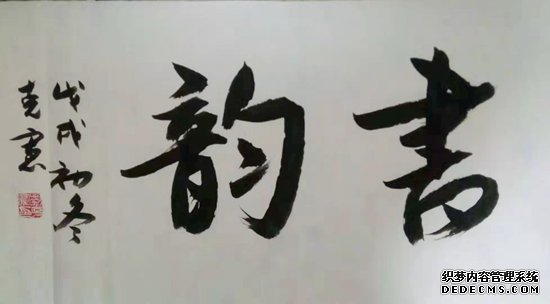 書韵
戊戌初冬
克憲
织梦内容管理系统
DEDECMS.COM